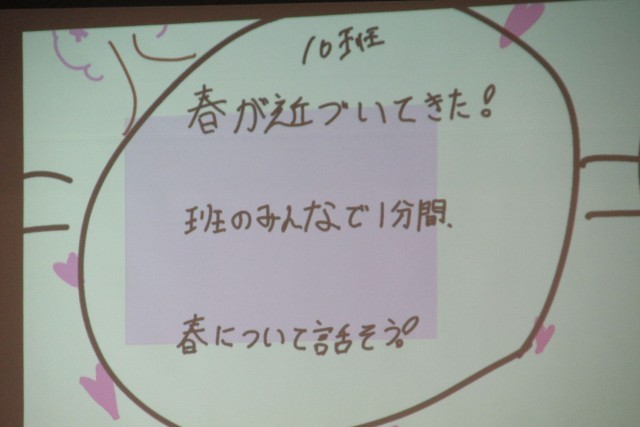 10班
春が近づいてきた!
班のみんなで1分間、
春について話そう!